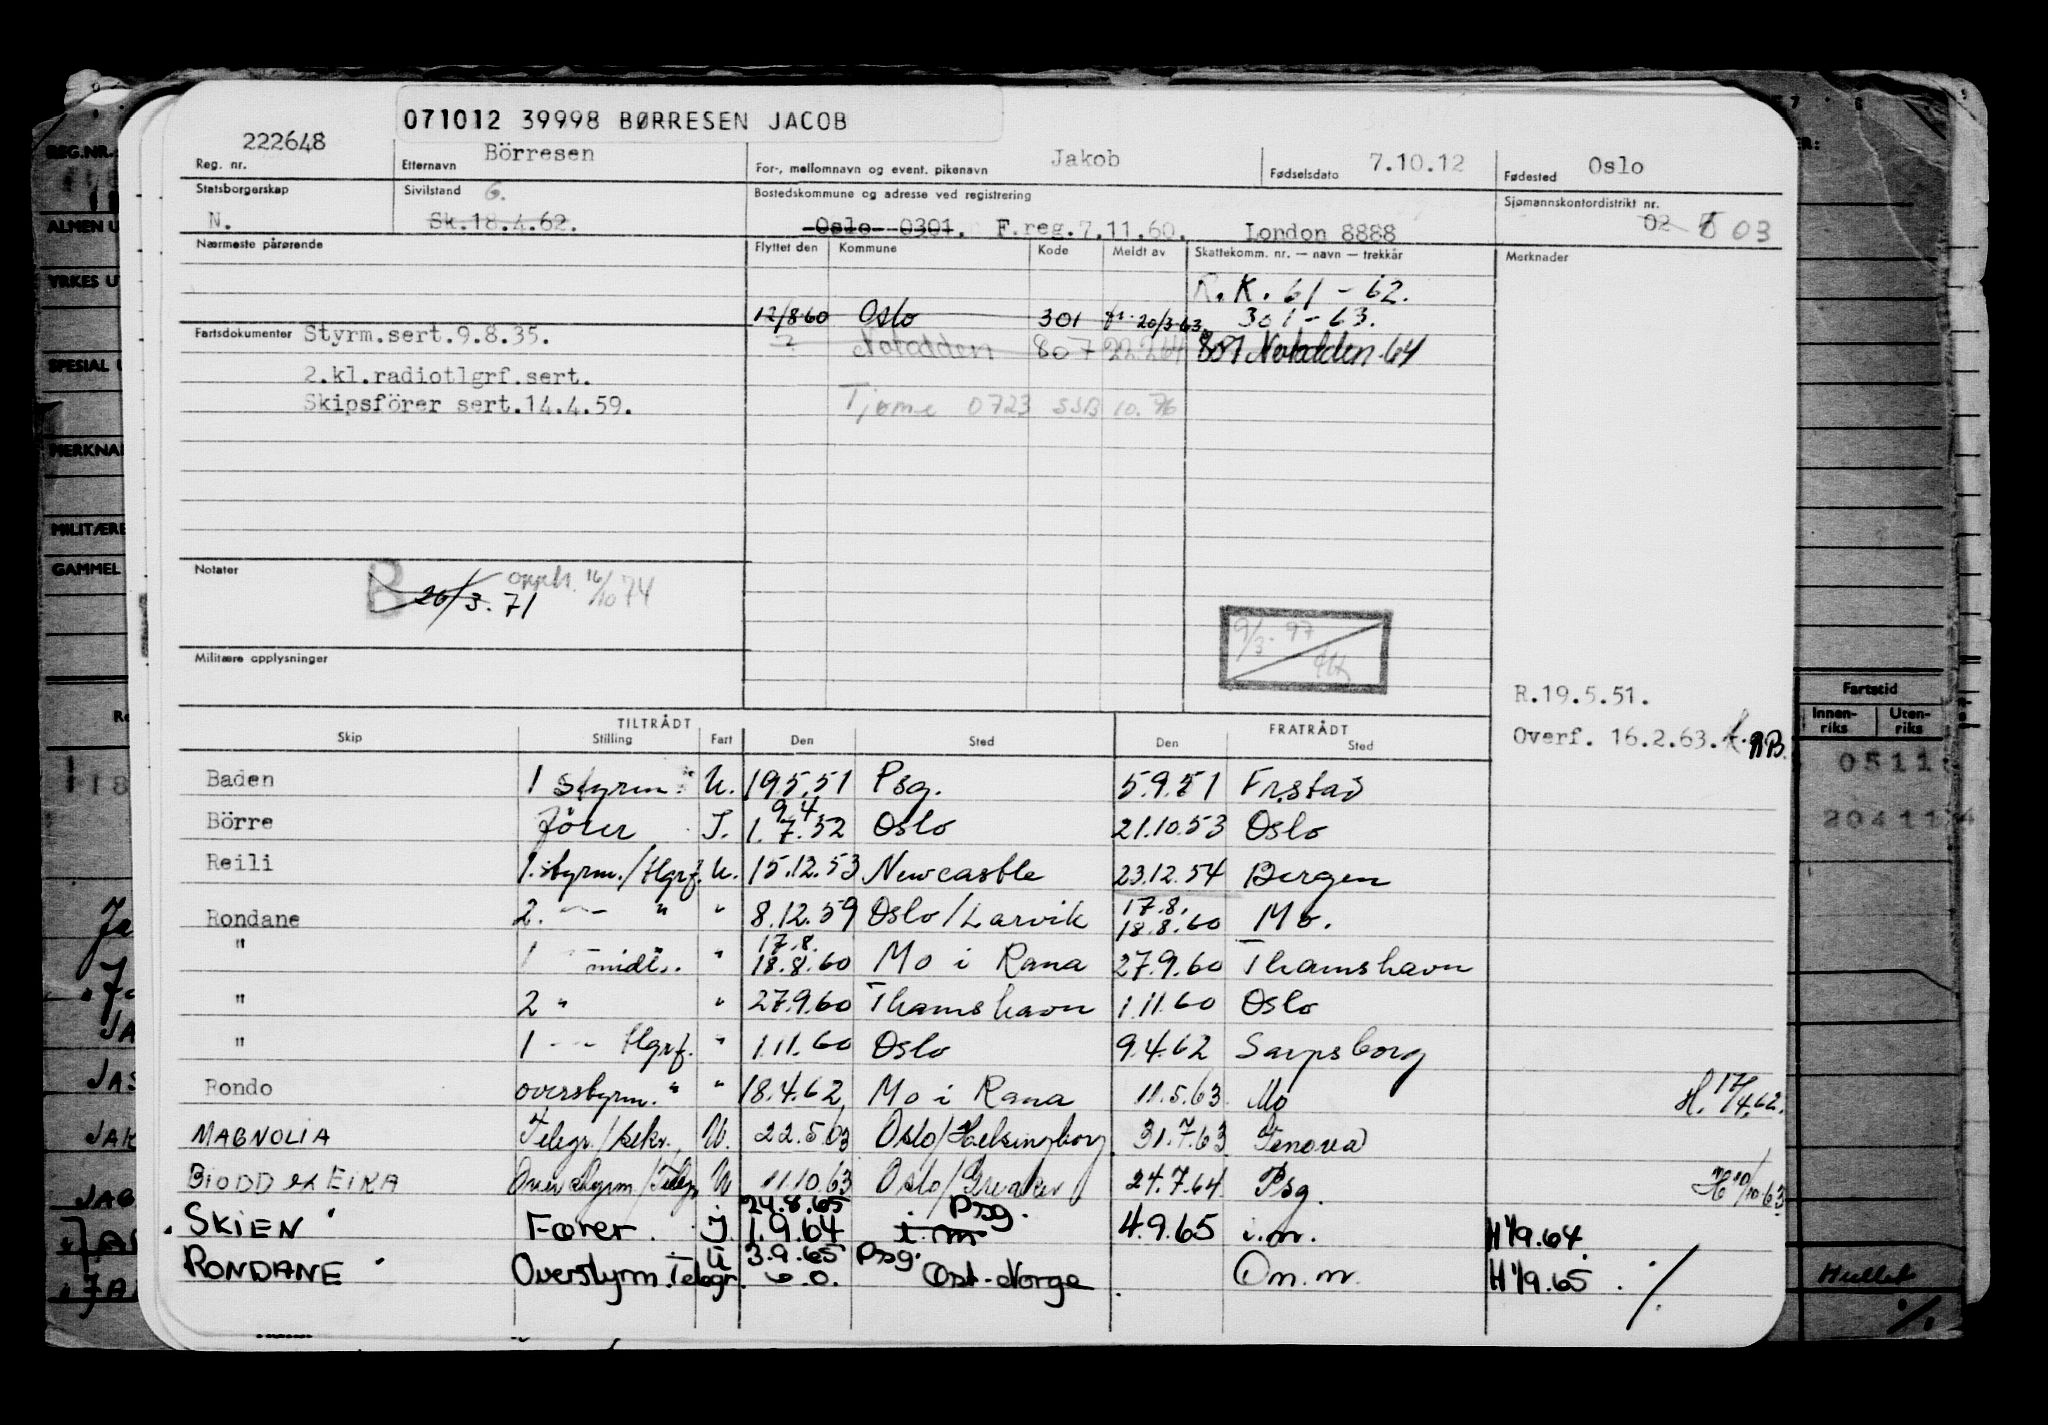 071012 39998 BØRRESEN JACOB
222648 Börresen Jakob 7.10.12 Oslo
Reg. nr. Etternavn For-, mellomnavn og event. pikenavn Fødselsdato Fødested
Statsborgerskap Sivilstand G. Bostedskommune og adresse ved registrering Sjømannskontordistrikt nr.
N. Sk.18.4.62. Oslo 0301. F.reg.7.11.60. London 8888 02 03
Nærmeste pårørende Flyttet den Kommune Kode Meldt av Skattekomm. nr. — navn — trekkår Merknader
R.K. 61 - 62.
12/8 60 Oslo 301 20/3-63 301 - 63.
Fartsdokumenter Styrm.sert.9.8.35. ? Notodden 807 22.2.64 807 Notodden-64
2.kl.radiotlgrf.sert.
Skipsförer sert.14.4.59. Tjøme 0723 SSB 10.76
Notater B 26/3.71 16/10 74
9/3-97
Militære opplysninger
R.19.5.51.
Overf. 16.2.63. AB.
TILTRÅDT FRATRÅDT
Skip Stilling Fart Den Sted Den Sted
Baden 1 styrm. U. 19.5.51 Psg. 5.9.51 Fr.stad
Börre förer I. 9.4. 1.7.52 Oslo 21.10.53 Oslo
Reili 1.styrm./tlgrf. U. 15.12.53 Newcastle 23.12.54 Bergen
Rondane 2. — " " 8.12.59 Oslo/Larvik 17.8. 18.8.60 Mo.
" 1 — midl. " 17.8. 18.8.60 Mo i Rana 27.9.60 Thamshavn
" 2 " " 27.9.60 Thamshavn 1.11.60 Oslo
" 1 - - tlgrf. " 1.11.60 Oslo 9.4.62 Sarpsborg
Rondo overstyrm. " " 18.4.62 Mo i Rana 11.5.63 Mo H. 17/4.62.
MAGNOLIA Telegr./sekr. U. 22.5.63 Oslo/Helsingborg 31.7.63 Genova
BIODD ex EIKA Overstyrm/Telegr U 11.10.63 Oslo/Greaker 24.7.64 Psg. H 10/10-63
SKIEN Fører. I. 24.8.65 1.9.64 Psg. i.m 4.9.65 i.m. H 1/9.64.
RONDANE Overstyrm.Telegr. U 3.9.65 Psg. Øst-Norge m.m. H 1/9.65 ./.
REG.NR.
YRKES U
SPESIAL
MERKNA
GAMMEL
Fartstid
Innen-
riks
Uten-
riks
0511
Hullet